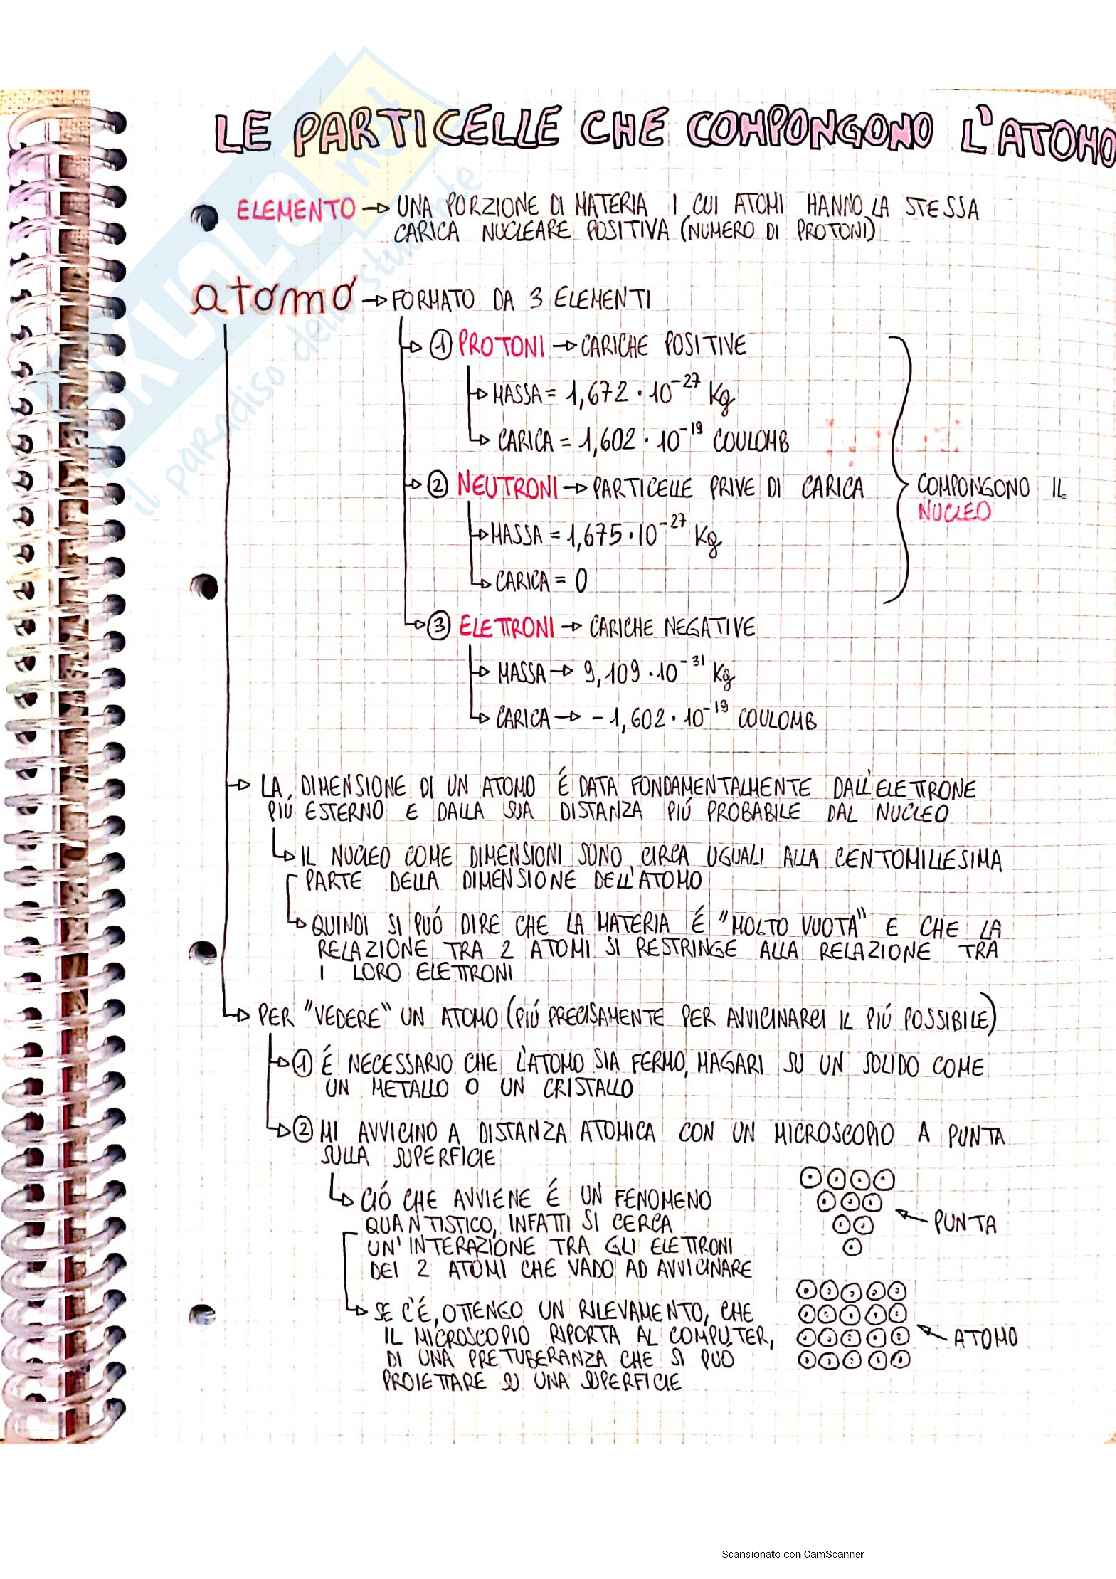 LE PARTICELLE CHE COMPONGONO L'ATOMO
ELEMENTO → UNA PORZIONE DI MATERIA I CUI ATOMI HANNO LA STESSA
CARICA NUCLEARE POSITIVA (NUMERO DI PROTONI)
atomo → FORMATO DA 3 ELEMENTI
① PROTONI → CARICHE POSITIVE
MASSA = 1,672 · 10⁻²⁷ Kg
CARICA = 1,602 · 10⁻¹⁹ COULOMB
② NEUTRONI → PARTICELLE PRIVE DI CARICA
COMPONGONO IL
NUCLEO
MASSA = 1,675 · 10⁻²⁷ Kg
CARICA = 0
③ ELETTRONI → CARICHE NEGATIVE
MASSA → 9,109 · 10⁻³¹ Kg
CARICA → -1,602 · 10⁻¹⁹ COULOMB
LA DIMENSIONE DI UN ATOMO É DATA FONDAMENTALMENTE DALL'ELETTRONE
PIÚ ESTERNO E DALLA SUA DISTANZA PIÚ PROBABILE DAL NUCLEO
IL NUCLEO COME DIMENSIONI SONO CIRCA UGUALI ALLA CENTOMILLESIMA
PARTE DELLA DIMENSIONE DELL'ATOMO
QUINDI SI PUÓ DIRE CHE LA MATERIA É "MOLTO VUOTA" E CHE LA
RELAZIONE TRA 2 ATOMI SI RESTRINGE ALLA RELAZIONE TRA
I LORO ELETTRONI
PER "VEDERE" UN ATOMO (PIÚ PRECISAMENTE PER AVVICINARCI IL PIÚ POSSIBILE)
① É NECESSARIO CHE L'ATOMO SIA FERMO, MAGARI SU UN SOLIDO COME
UN METALLO O UN CRISTALLO
② MI AVVICINO A DISTANZA ATOMICA CON UN MICROSCOPIO A PUNTA
SULLA SUPERFICIE
CIÓ CHE AVVIENE É UN FENOMENO
QUANTISTICO, INFATTI SI CERCA
UN'INTERAZIONE TRA GLI ELETTRONI
DEI 2 ATOMI CHE VADO AD AVVICINARE
PUNTA
SE C'É, OTTENGO UN RILEVAMENTO, CHE
IL MICROSCOPIO RIPORTA AL COMPUTER,
DI UNA PRETUBERANZA CHE SI PUÓ
PROIETTARE SU UNA SUPERFICIE
ATOMO
SKUOLA.net
il paradiso dello studente
Scansionato con CamScanner